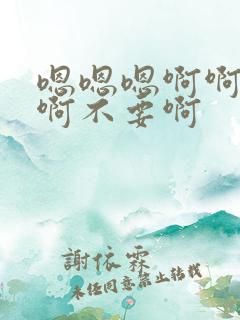 嗯嗯嗯啊啊
啊不要啊
謝依霖
未经同意禁止转载